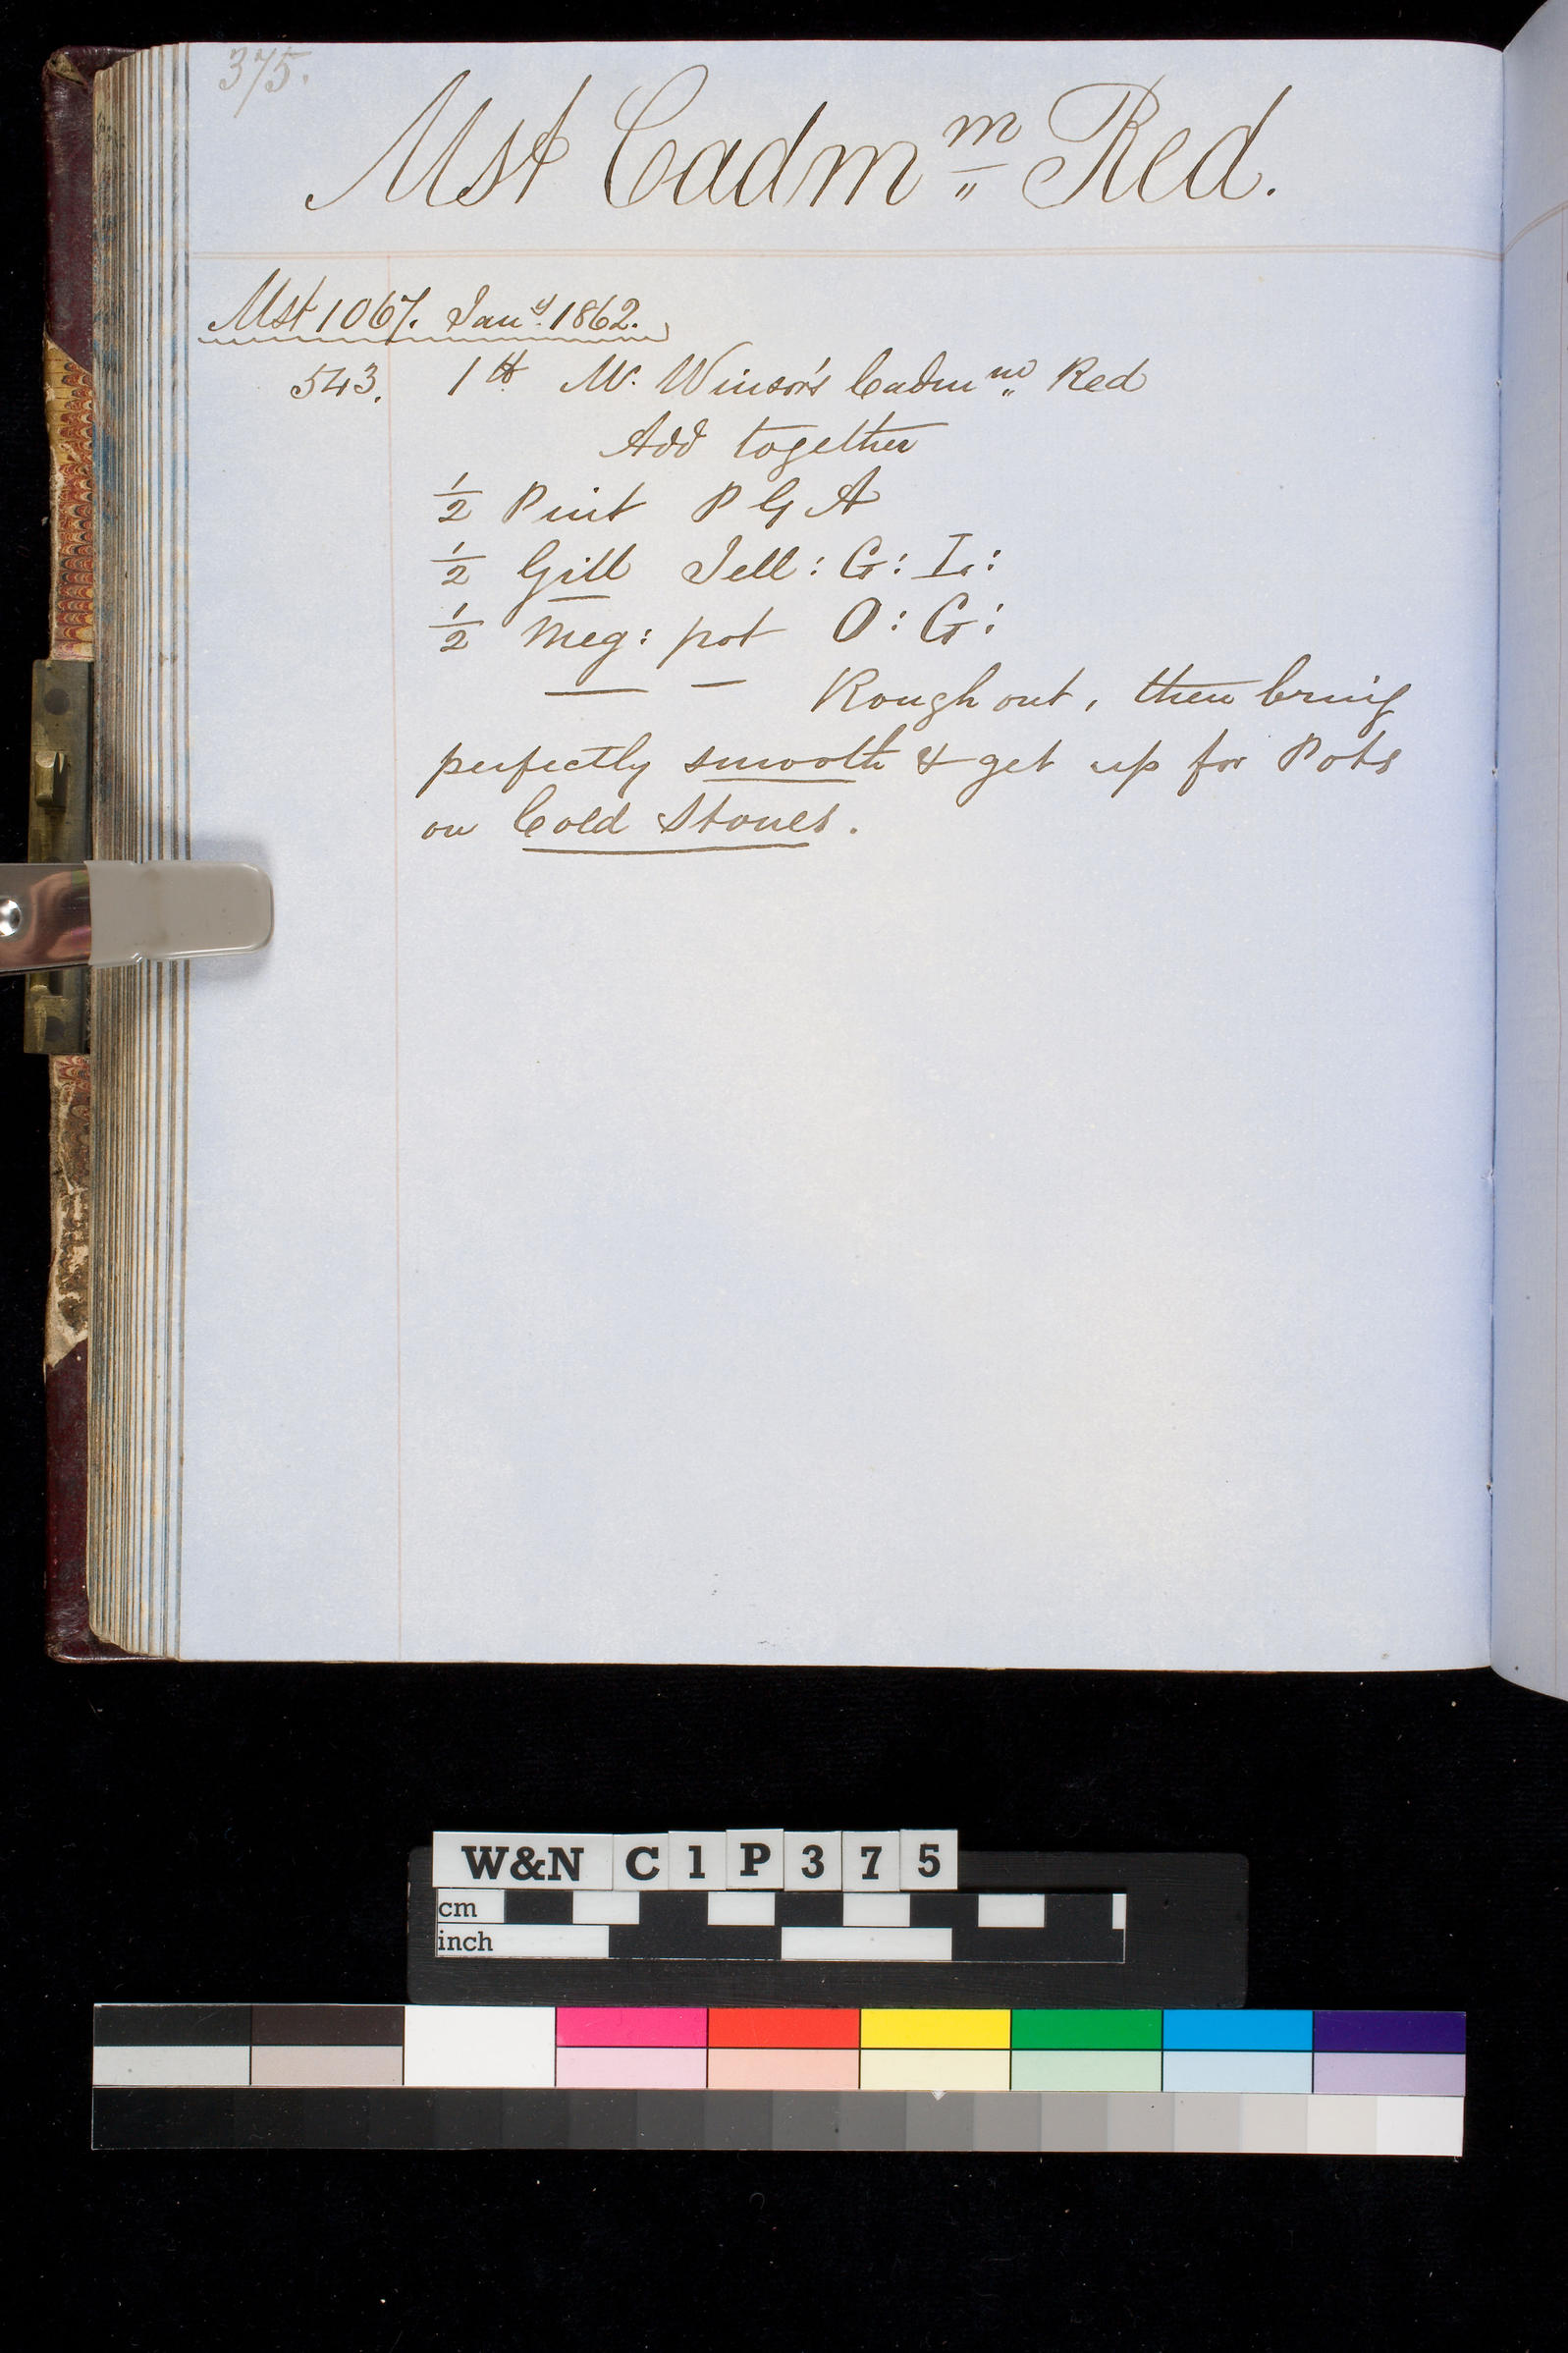 375.
Mst Cadm^m Red.
Mst 1067. Jan^y. 1862.
543. 1 ℔ Mr. Winsor's Cadm^m Red
Add together
½ Pint P G A
½ Gill Jell: G: L:
½ Meg: pot O: G:
Rough out, then bring
perfectly smooth & get up for Pots
on Cold Stones.
W&N C1P375
cm
inch